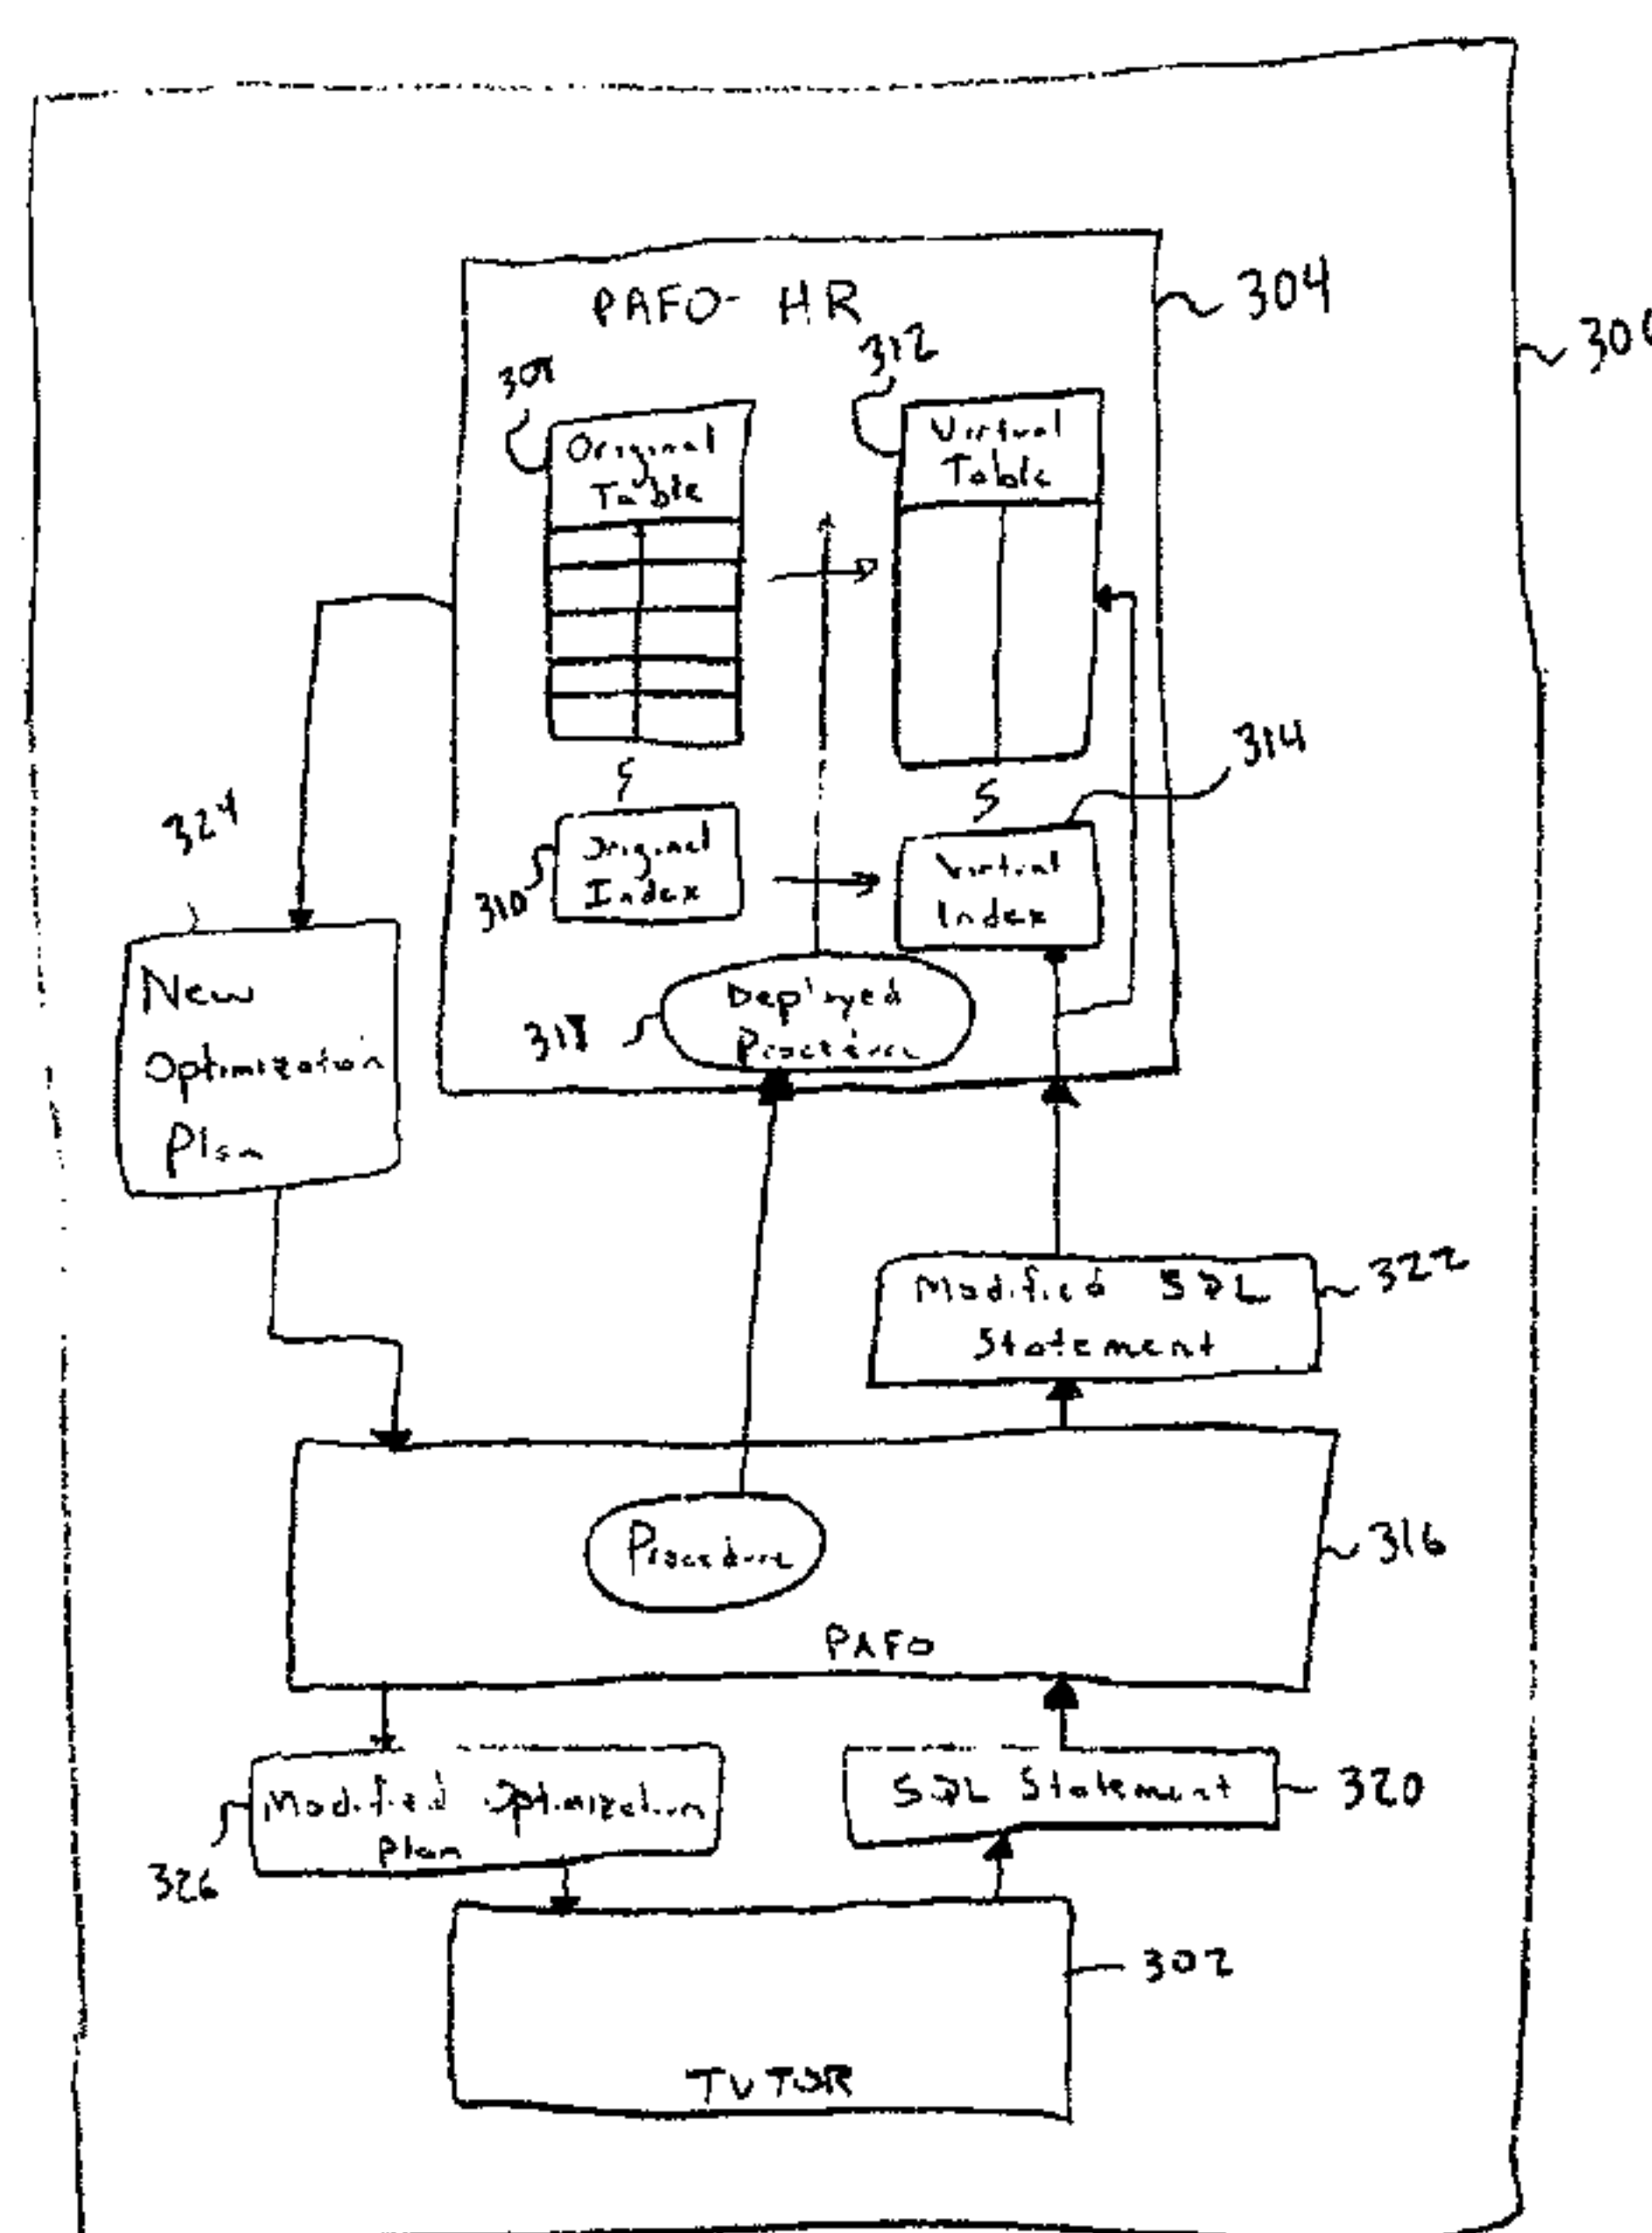 PAFO- HR
304
312
Original
Table
Virtual
Table
314
324
310
Original
Index
Virtual
Index
New
Optimization
Plan
318
Deployed
Procedure
322
Modified SQL
Statement
Procedure
316
PAFO
Modified Optimization
Plan
326
SQL Statement
320
302
TUTOR